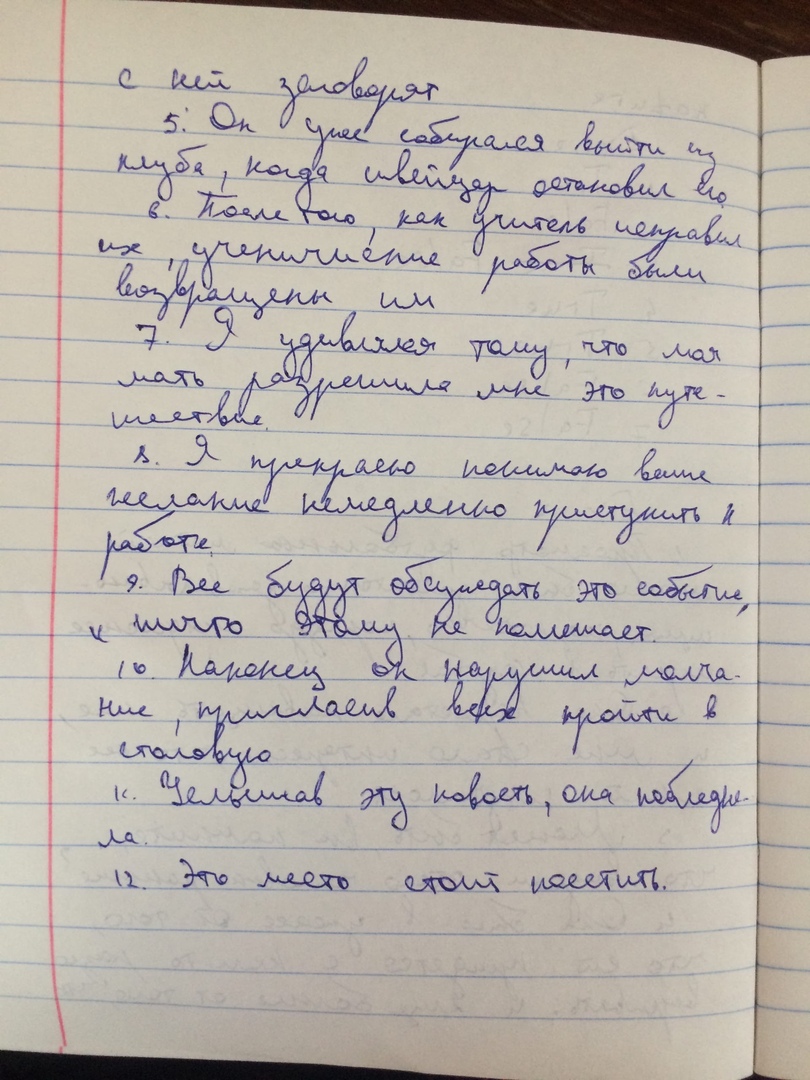 с ней заговорят
5. Он уже собирался выйти из
клуба, когда швейцар остановил его.
6. После того, как учитель исправил
их, ученические работы были
возвращены им
7. Я удивлялся тому, что моя
мать разрешила мне это путе-
шествие.
8. Я прекрасно понимаю ваше
желание немедленно приступить к
работе.
9. Все будут обсуждать это событие,
и ничто этому не помешает.
10. Наконец он нарушил молча-
ние, пригласив всех пройти в
столовую
11. Услышав эту новость, она побледне-
ла.
12. Это место стоит посетить.